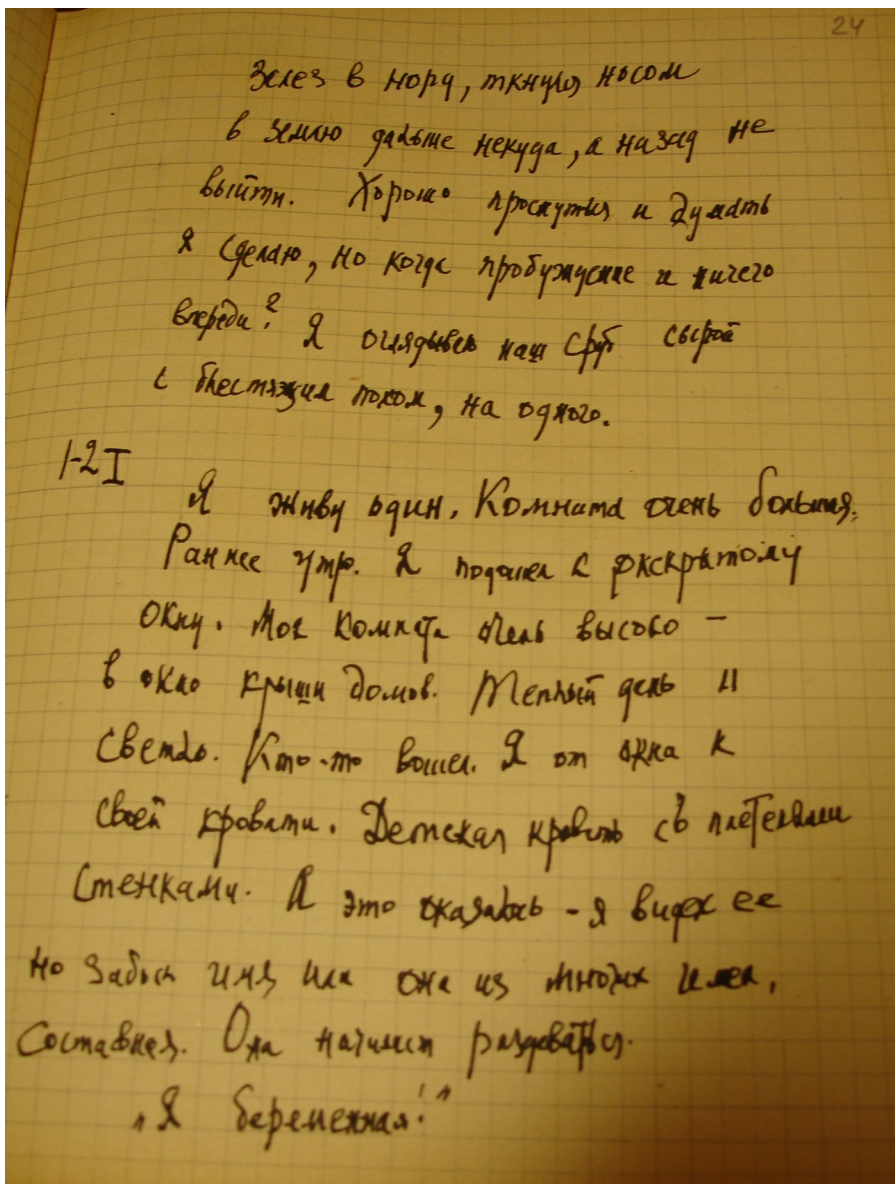 24
Залез в нору, ткнулся носом
в землю дальше некуда, а назад не
выйти. Хорошо проснуться и думать
я сделаю, но когда пробуждение и ничего
впереди? Я оглядываю наш сруб сырой
с блестящим полом, на одного.
1-2 I
Я живу один. Комната очень большая.
Раннее утро. Я подошел к открытому
окну. Моя комната очень высоко —
в окно крыши домов. Теплый день и
светло. Кто-то вошел. Я от окна к
своей кровати. Детская кровать с плетеными
стенками. А это оказалось - я видел ее
но забыл имя или она из многих имен,
составная. Она начинает раздеваться.
"Я беременная!"